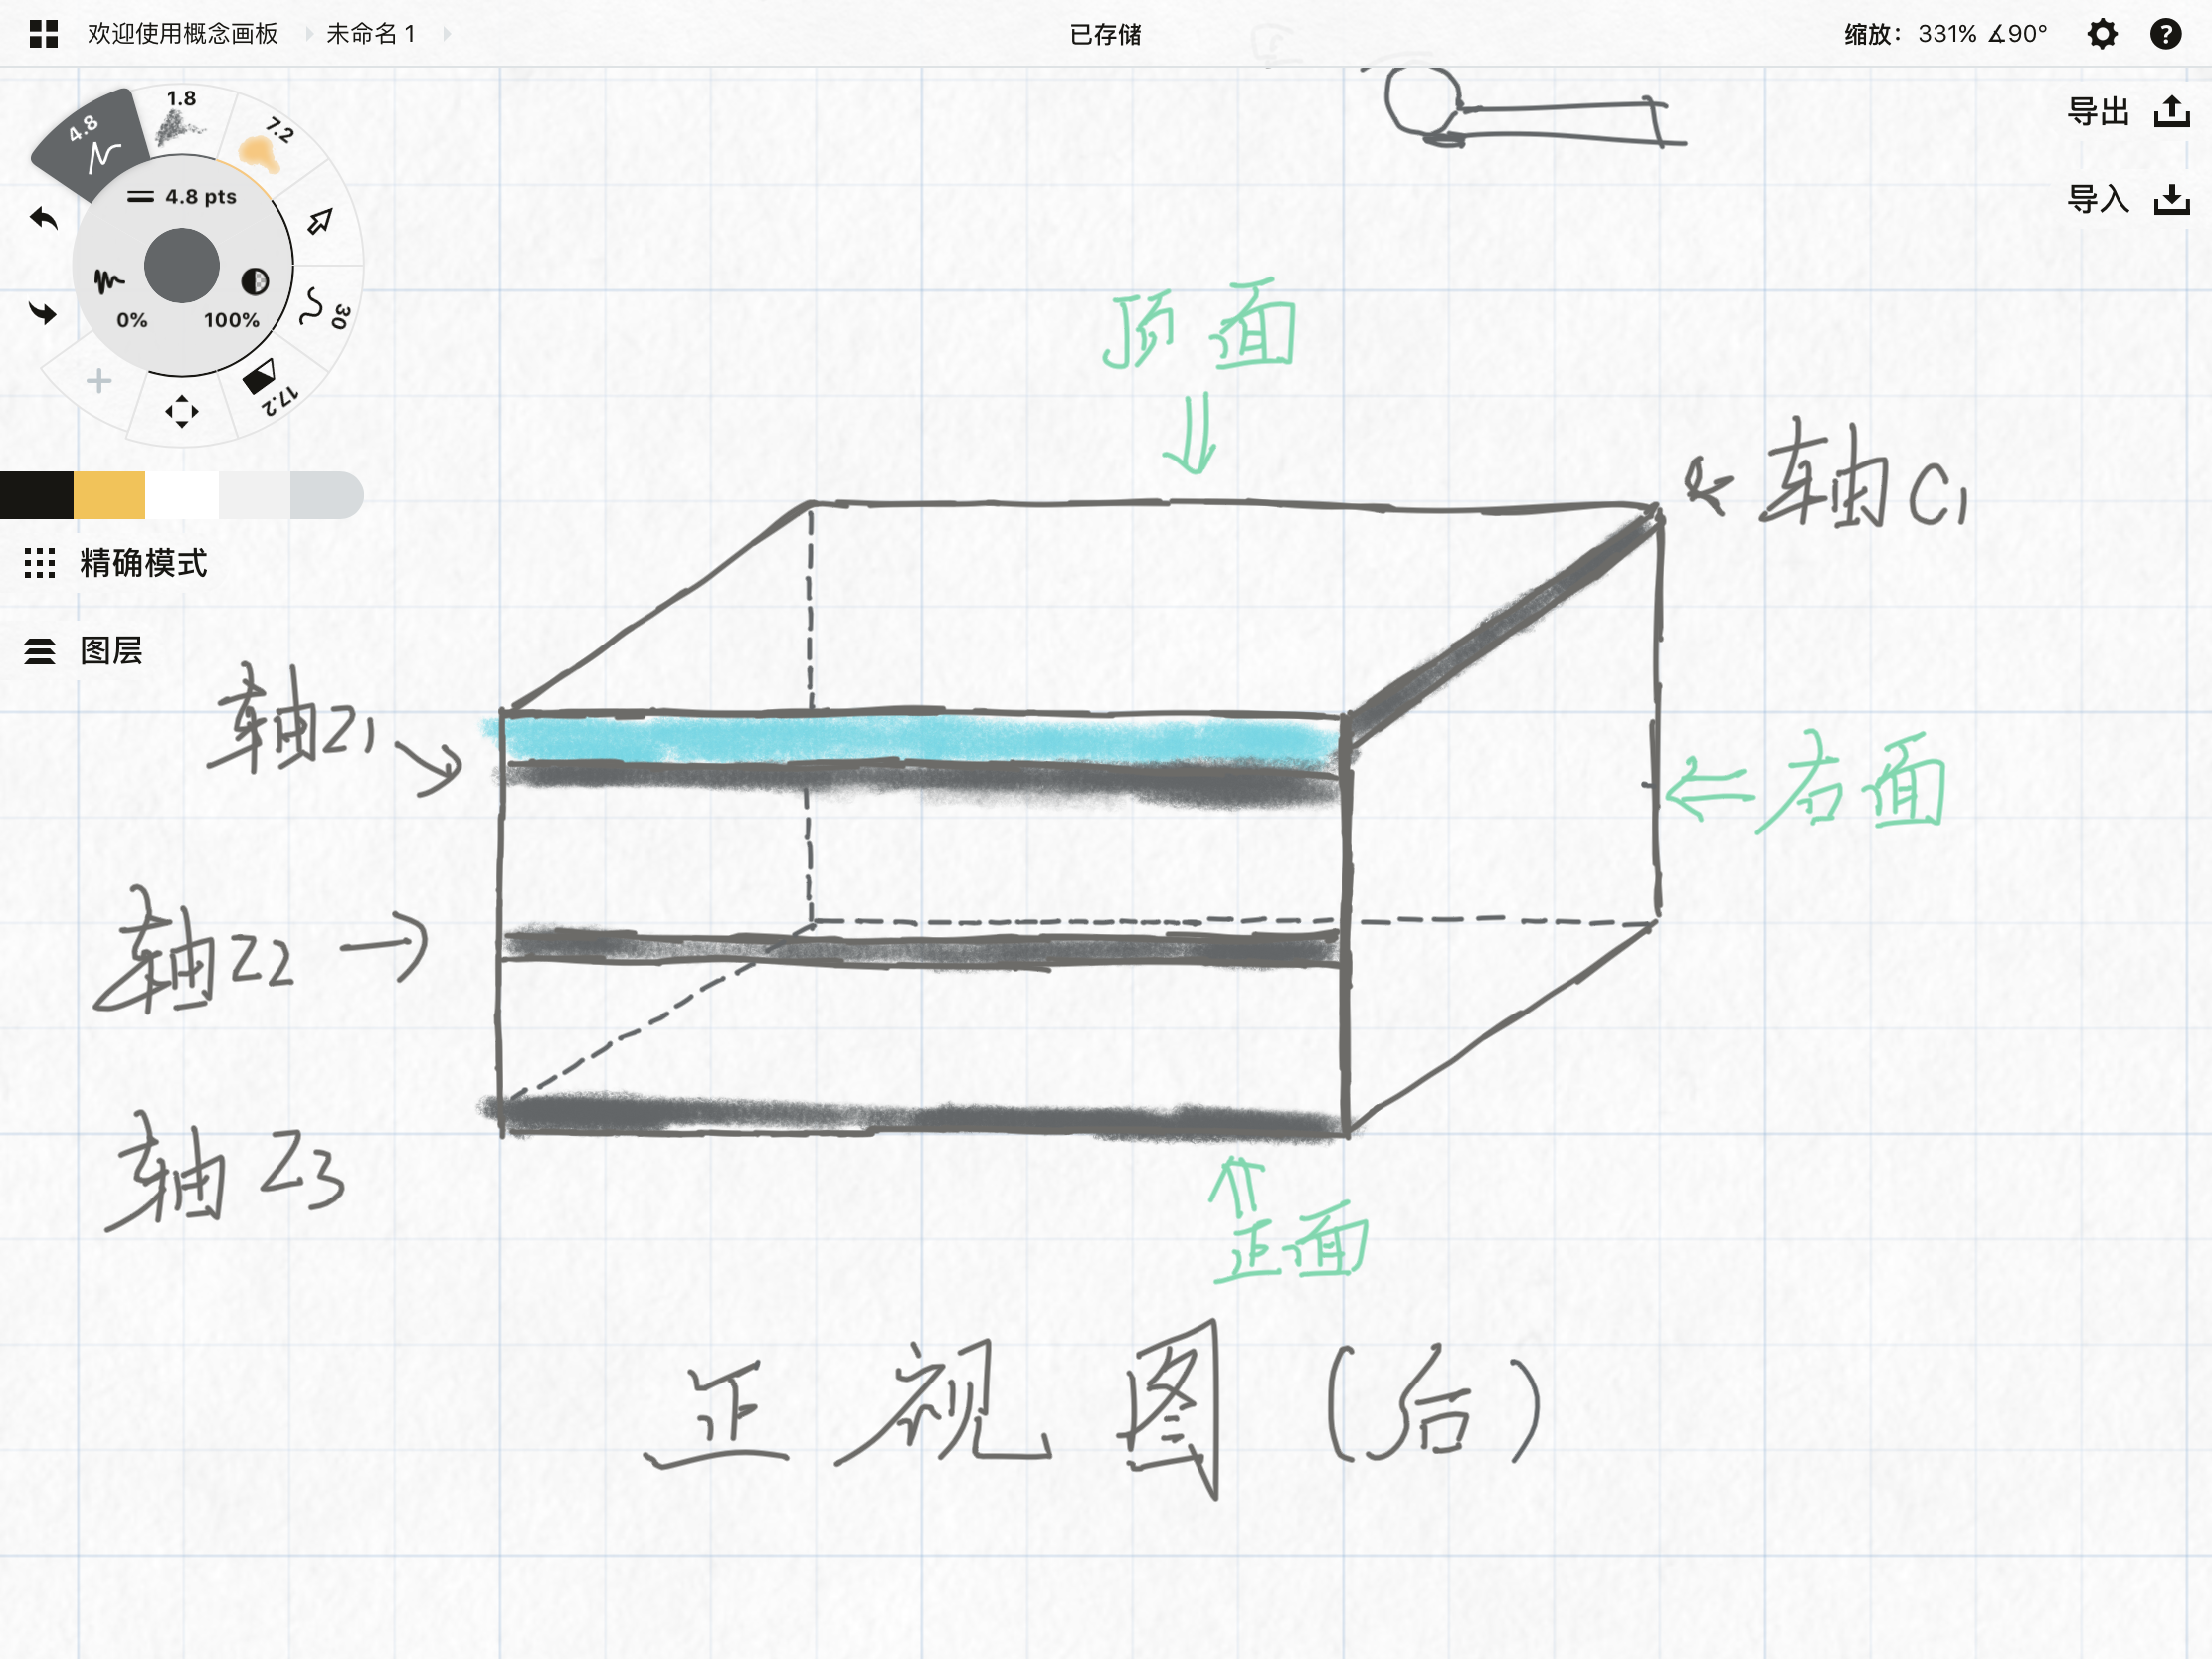 欢迎使用概念画板 未命名 1
已存储
缩放: 331% ∡90°
导出
导入
1.8
4.8
7.2
4.8 pts
0% 100%
30
17.2
精确模式
图层
顶面
轴C1
轴Z1
右面
轴Z2
轴Z3
正面
正视图(后)